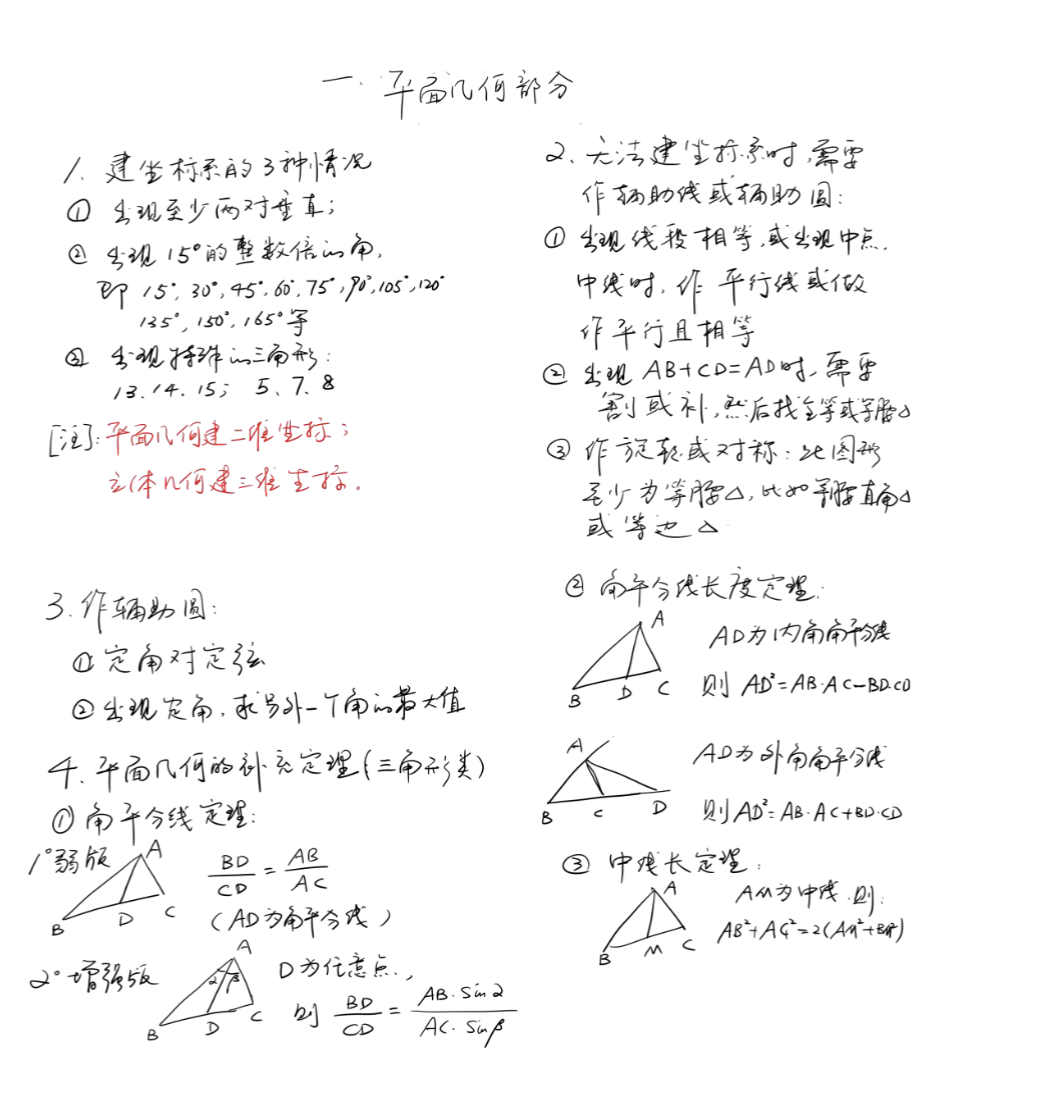 一. 平面几何部分
1. 建坐标系的3种情况
① 出现至少两对垂直;
② 出现15°的整数倍的角,
即 15°, 30°, 45°, 60°, 75°, 90°, 105°, 120°
135°, 150°, 165°等
③ 出现特殊的三角形:
13. 14. 15; 5. 7. 8
[注]: 平面几何建二维坐标;
立体几何建三维坐标.
2. 无法建坐标系时, 需要
作辅助线或辅助圆:
① 出现线段相等, 或出现中点,
中线时, 作 平行线或做
作平行且相等
② 出现 AB+CD=AD时, 需要
割或补, 然后找全等或等腰△
③ 作旋转或对称: 此图形
至少为等腰△, 比如等腰直角△
或等边△
3. 作辅助圆:
① 定角对定弦
② 出现定角, 求另外一个角的最大值
4. 平面几何的补充定理(三角形类)
① 角平分线定理:
1° 弱版
A
B
D
C
BD/CD = AB/AC
(AD为角平分线)
2° 增强版
A
α β
B
D
C
D为任意点,
则 BD/CD = AB·Sinα/AC·Sinβ
② 角平分线长度定理:
A
B
D
C
AD为内角角平分线
则 AD²=AB·AC−BD·CD
A
B
C
D
AD为外角角平分线
则 AD²=AB·AC+BD·CD
③ 中线长定理:
A
B
M
C
AM为中线, 则:
AB²+AC²=2(AM²+BM²)